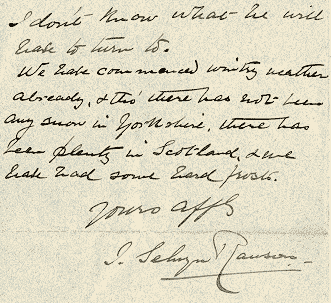 I don't know what he will
have to turn to.
We have commenced wintry weather
already, & tho' there has not been
any snow in Yorkshire, there has
been plenty in Scotland, & we
have had some hard frosts.
Yours affly
J. Selwyn Rawson